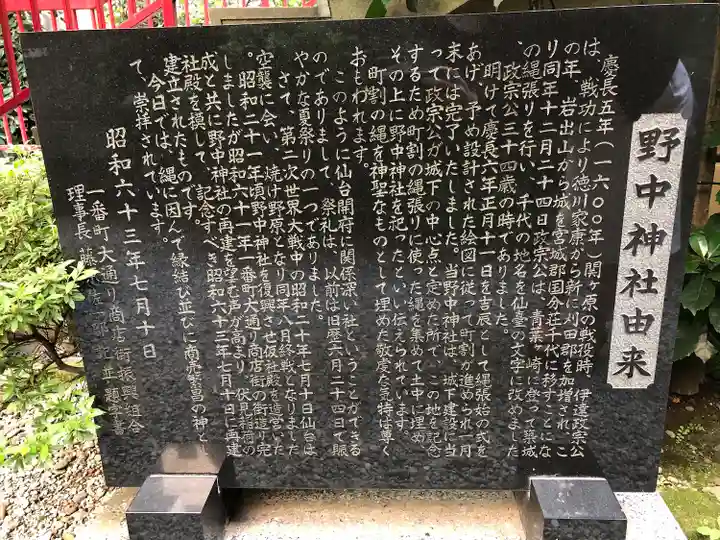 野中神社由来
慶長五年(一六〇〇年)関ヶ原の戦役時、伊達政宗公
は、戦功により徳川家康から新に刈田郡を加増され、こ
の年、岩出山から城を宮城郡国分荘千代に移すことにな
り同年十二月二十四日政宗公は、青葉ヶ崎に登って築城
の縄張りを行い、千代の地名を仙臺の文字に改めました
。政宗公三十四歳の時でありました。
明けて慶長六年正月十一日を吉辰として縄張始の式を
あげ、予め設計された絵図に従って町割が進められ一月
末には完了いたしました。当野中神社は、城下建設に当
って政宗公が城下の中心点と定めた所で、この地を記念
するため町割の縄張りに使った縄を集めて土中に埋め
その上に野中神社を祀ったといい伝えられています。
町割の縄を神聖なものとして埋めた敬虔な気持は尊く
おもわれます。
このように仙台開府に関係深い社ということができる
のでありまして、祭礼は、以前は旧暦六月二十四日で賑
やかな夏祭りの一つでありました。
さて、第二次世界大戦中の昭和二十年七月十日仙台は
空襲に会い、焼け野原となり同年八月終戦となりました
。昭和二十一年頃野中神社を復興させ仮社殿を造営いた
しましたが昭和六十一年一番町大通り商店街の街造り完
成と共に野中神社の再建を望む声が高まり、伏見稲荷の
社殿を模して、記念すべき昭和六十三年七月十日に再建
建立されたものです。
今日では、縄に因んで縁結び並びに商売繁昌の神とし
て、崇拝されています。
昭和六十三年七月十日
一番町大通り商店街振興組合
理事長 藤 佐 郎 記 並 題字書